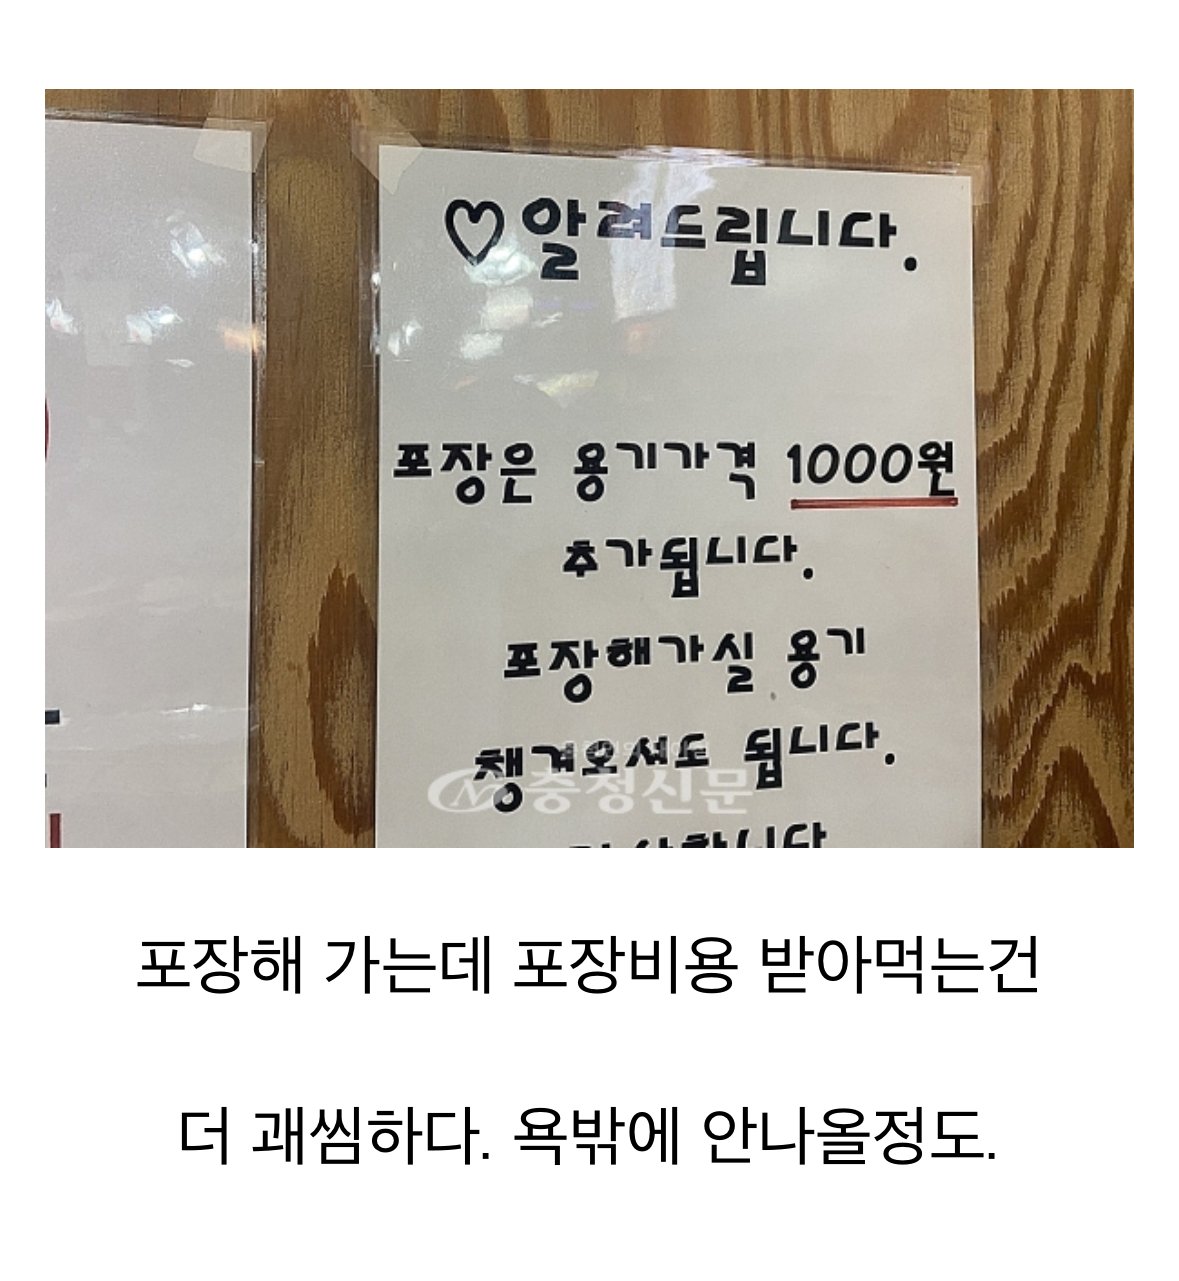 ♡알려드립니다.
포장은 용기가격 1000원
추가됩니다.
포장해가실 용기
챙겨오셔도 됩니다.
충청신문
포장해 가는데 포장비용 받아먹는건
더 괘씸하다. 욕밖에 안나올정도.